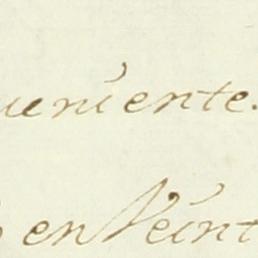 ueniente.
en Veint